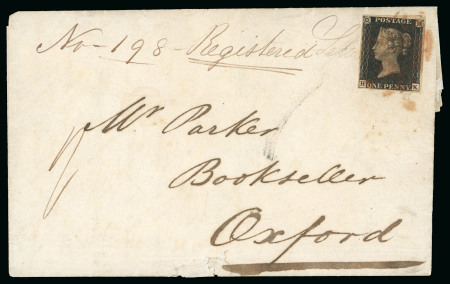 No - 198 - Registered Letter
POSTAGE
ONE PENNY
H K
Mr Parker
Bookseller
Oxford